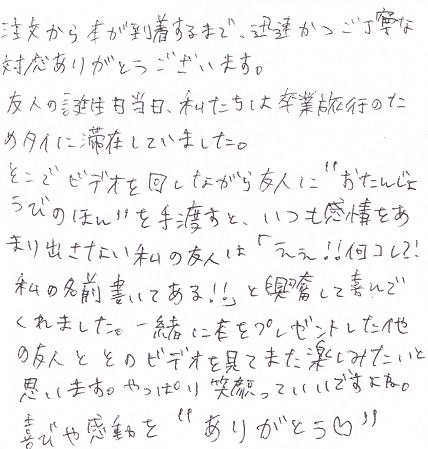 注文から本が到着するまで、迅速かつご丁寧な
対応ありがとうございます。
友人の誕生日当日、私たちは卒業旅行のた
めタイに滞在していました。
そこでビデオを回しながら友人に"おたんじょ
うびのほん"を手渡すと、いつも感情をあ
まり出さない私の友人は「ええ!!何コレ?!
私の名前書いてある!!」と興奮して喜んで
くれました。一緒に本をプレゼントした他
の友人とそのビデオを見てまた楽しみたいと
思います。やっぱり笑顔っていいですよね。
喜びや感動を"ありがとう♡"